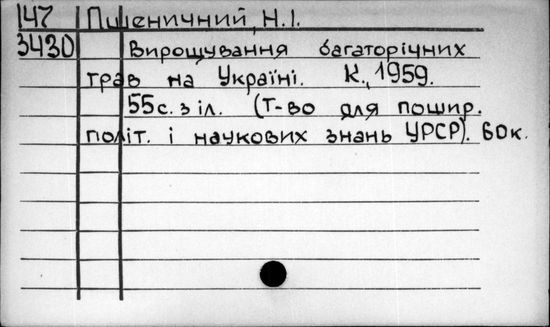 147 Пшеничний, Н.І.
3430 Вирощування багаторічних
трав на Україні. К., 1959.
55с. з іл. (Т-во для пошир.
політ. і наукових знань УРСР). 60к.